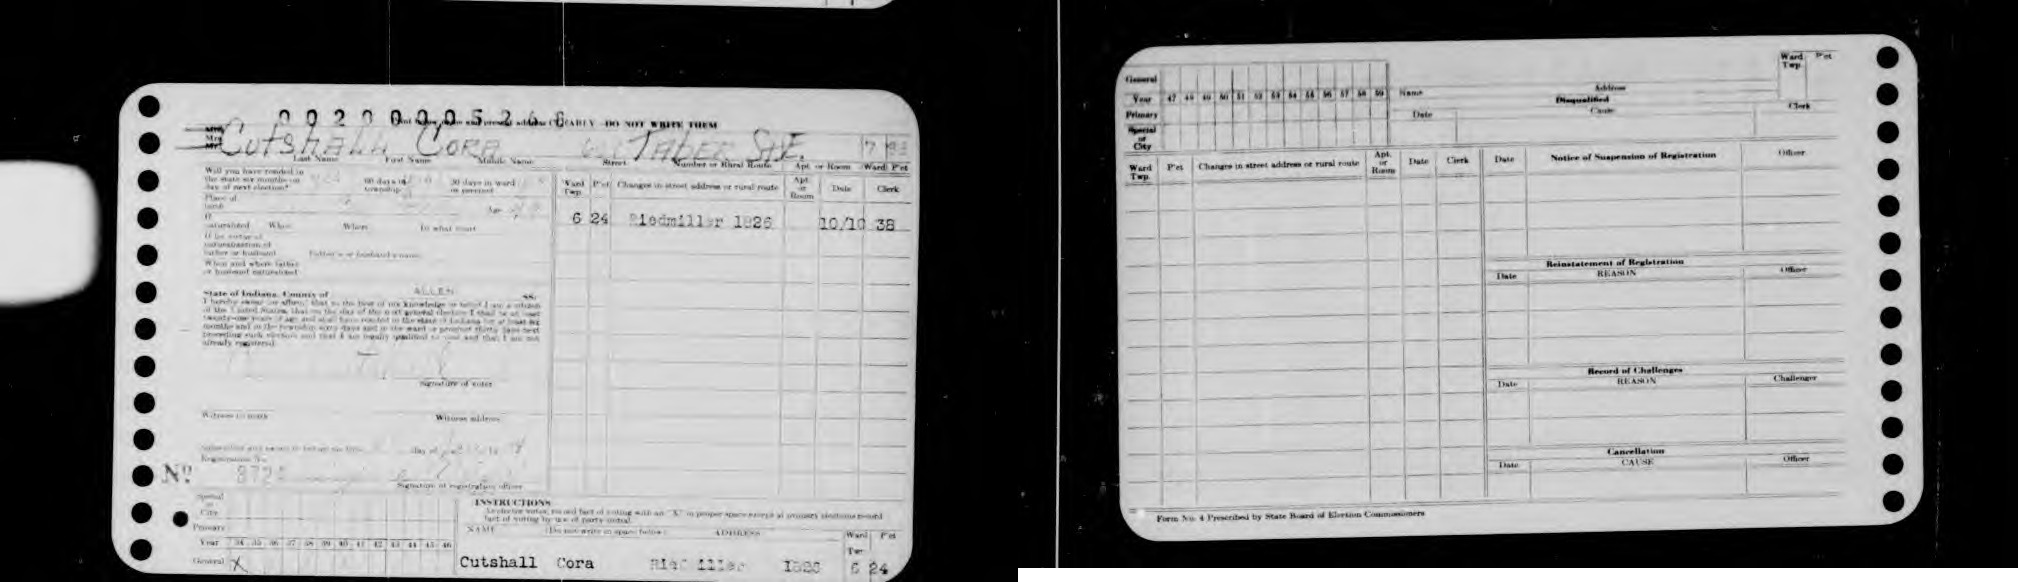 0020000526
DO NOT WRITE THEM
Cutshall Cora Taber St. E. 7
Last Name First Name Middle Name Street Number or Rural Route Apt. or Room Ward P'ct
Will you have resided in
the state six months on 60 days in 30 days in ward
day of next election? township or precinct
Place of
birth Age
If
naturalized When Where In what court
If by virtue of
naturalization of
father or husband Father's or husband's name
When and where father
or husband naturalized
State of Indiana, County of ALLEN SS:
I hereby swear (or affirm) that to the best of my knowledge or belief I am a citizen
of the United States, that on the day of the next general election I shall be at least
twenty-one years of age and shall have resided in the state of Indiana for at least six
months and in the township sixty days and in the ward or precinct thirty days next
preceding such election and that I am legally qualified to vote and that I am not
already registered.
Signature of voter
Witness to mark Witness address
Subscribed and sworn to before me this day of
Registration No.
No. 872
Signature of registration officer
Ward Twp. P'ct Changes in street address or rural route Apt. or Room Date Clerk
6 24 Riedmiller 1826 10/10 38
Special
or
City
Primary
Year 34 35 36 37 38 39 40 41 42 43 44 45 46
General X
INSTRUCTIONS
As elector votes, record fact of voting with an "X" in proper space except at primary elections record
fact of voting by use of party initial.
NAME (Do not write in space below) ADDRESS Ward Twp. P'ct
Cutshall Cora Riedmiller 1826 6 24
General
Year 47 48 49 50 51 52 53 54 55 56 57 58 59
Primary
Special
or
City
Name Address Ward Twp. P'ct
Disqualified
Date Cause Clerk
Ward Twp. P'ct Changes in street address or rural route Apt. or Room Date Clerk
Date Notice of Suspension of Registration Officer
Reinstatement of Registration
Date REASON Officer
Record of Challenges
Date REASON Challenger
Cancellation
Date CAUSE Officer
Form No. 4 Prescribed by State Board of Election Commissioners